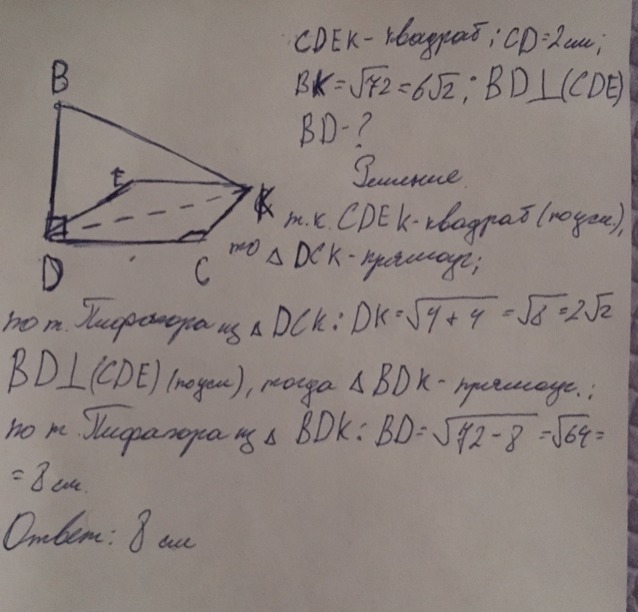 CDEK - квадрат; CD = 2 см;
BK = √72 = 6√2; BD ⊥ (CDE)
BD - ?
Решение
B
E
K
D
C
т.к. CDEK - квадрат (по усл.),
то △ DCK - прямоуг;
по т. Пифагора из △ DCK: DK = √4 + 4 = √8 = 2√2
BD ⊥ (CDE) (по усл), тогда △ BDK - прямоуг.;
по т. Пифагора из △ BDK: BD = √72 - 8 = √64 =
= 8 см.
Ответ: 8 см